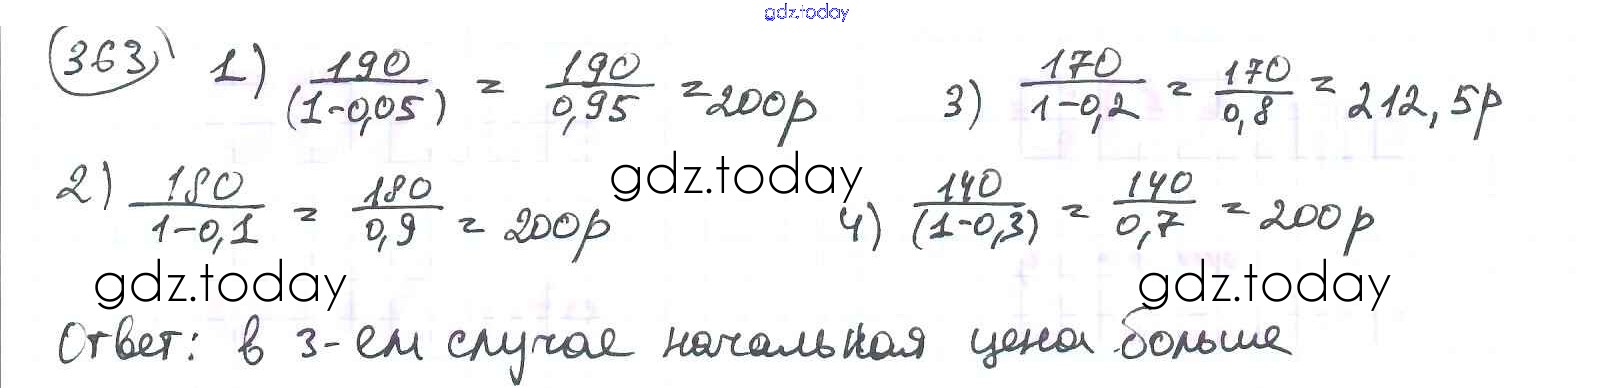 gdz.today
363) 1) 190/(1-0,05) = 190/0,95 = 200р
3) 170/1-0,2 = 170/0,8 = 212,5р
gdz.today
2) 180/1-0,1 = 180/0,9 = 200р
4) 140/(1-0,3) = 140/0,7 = 200р
gdz.today
gdz.today
Ответ: в 3-ем случае начальная цена больше